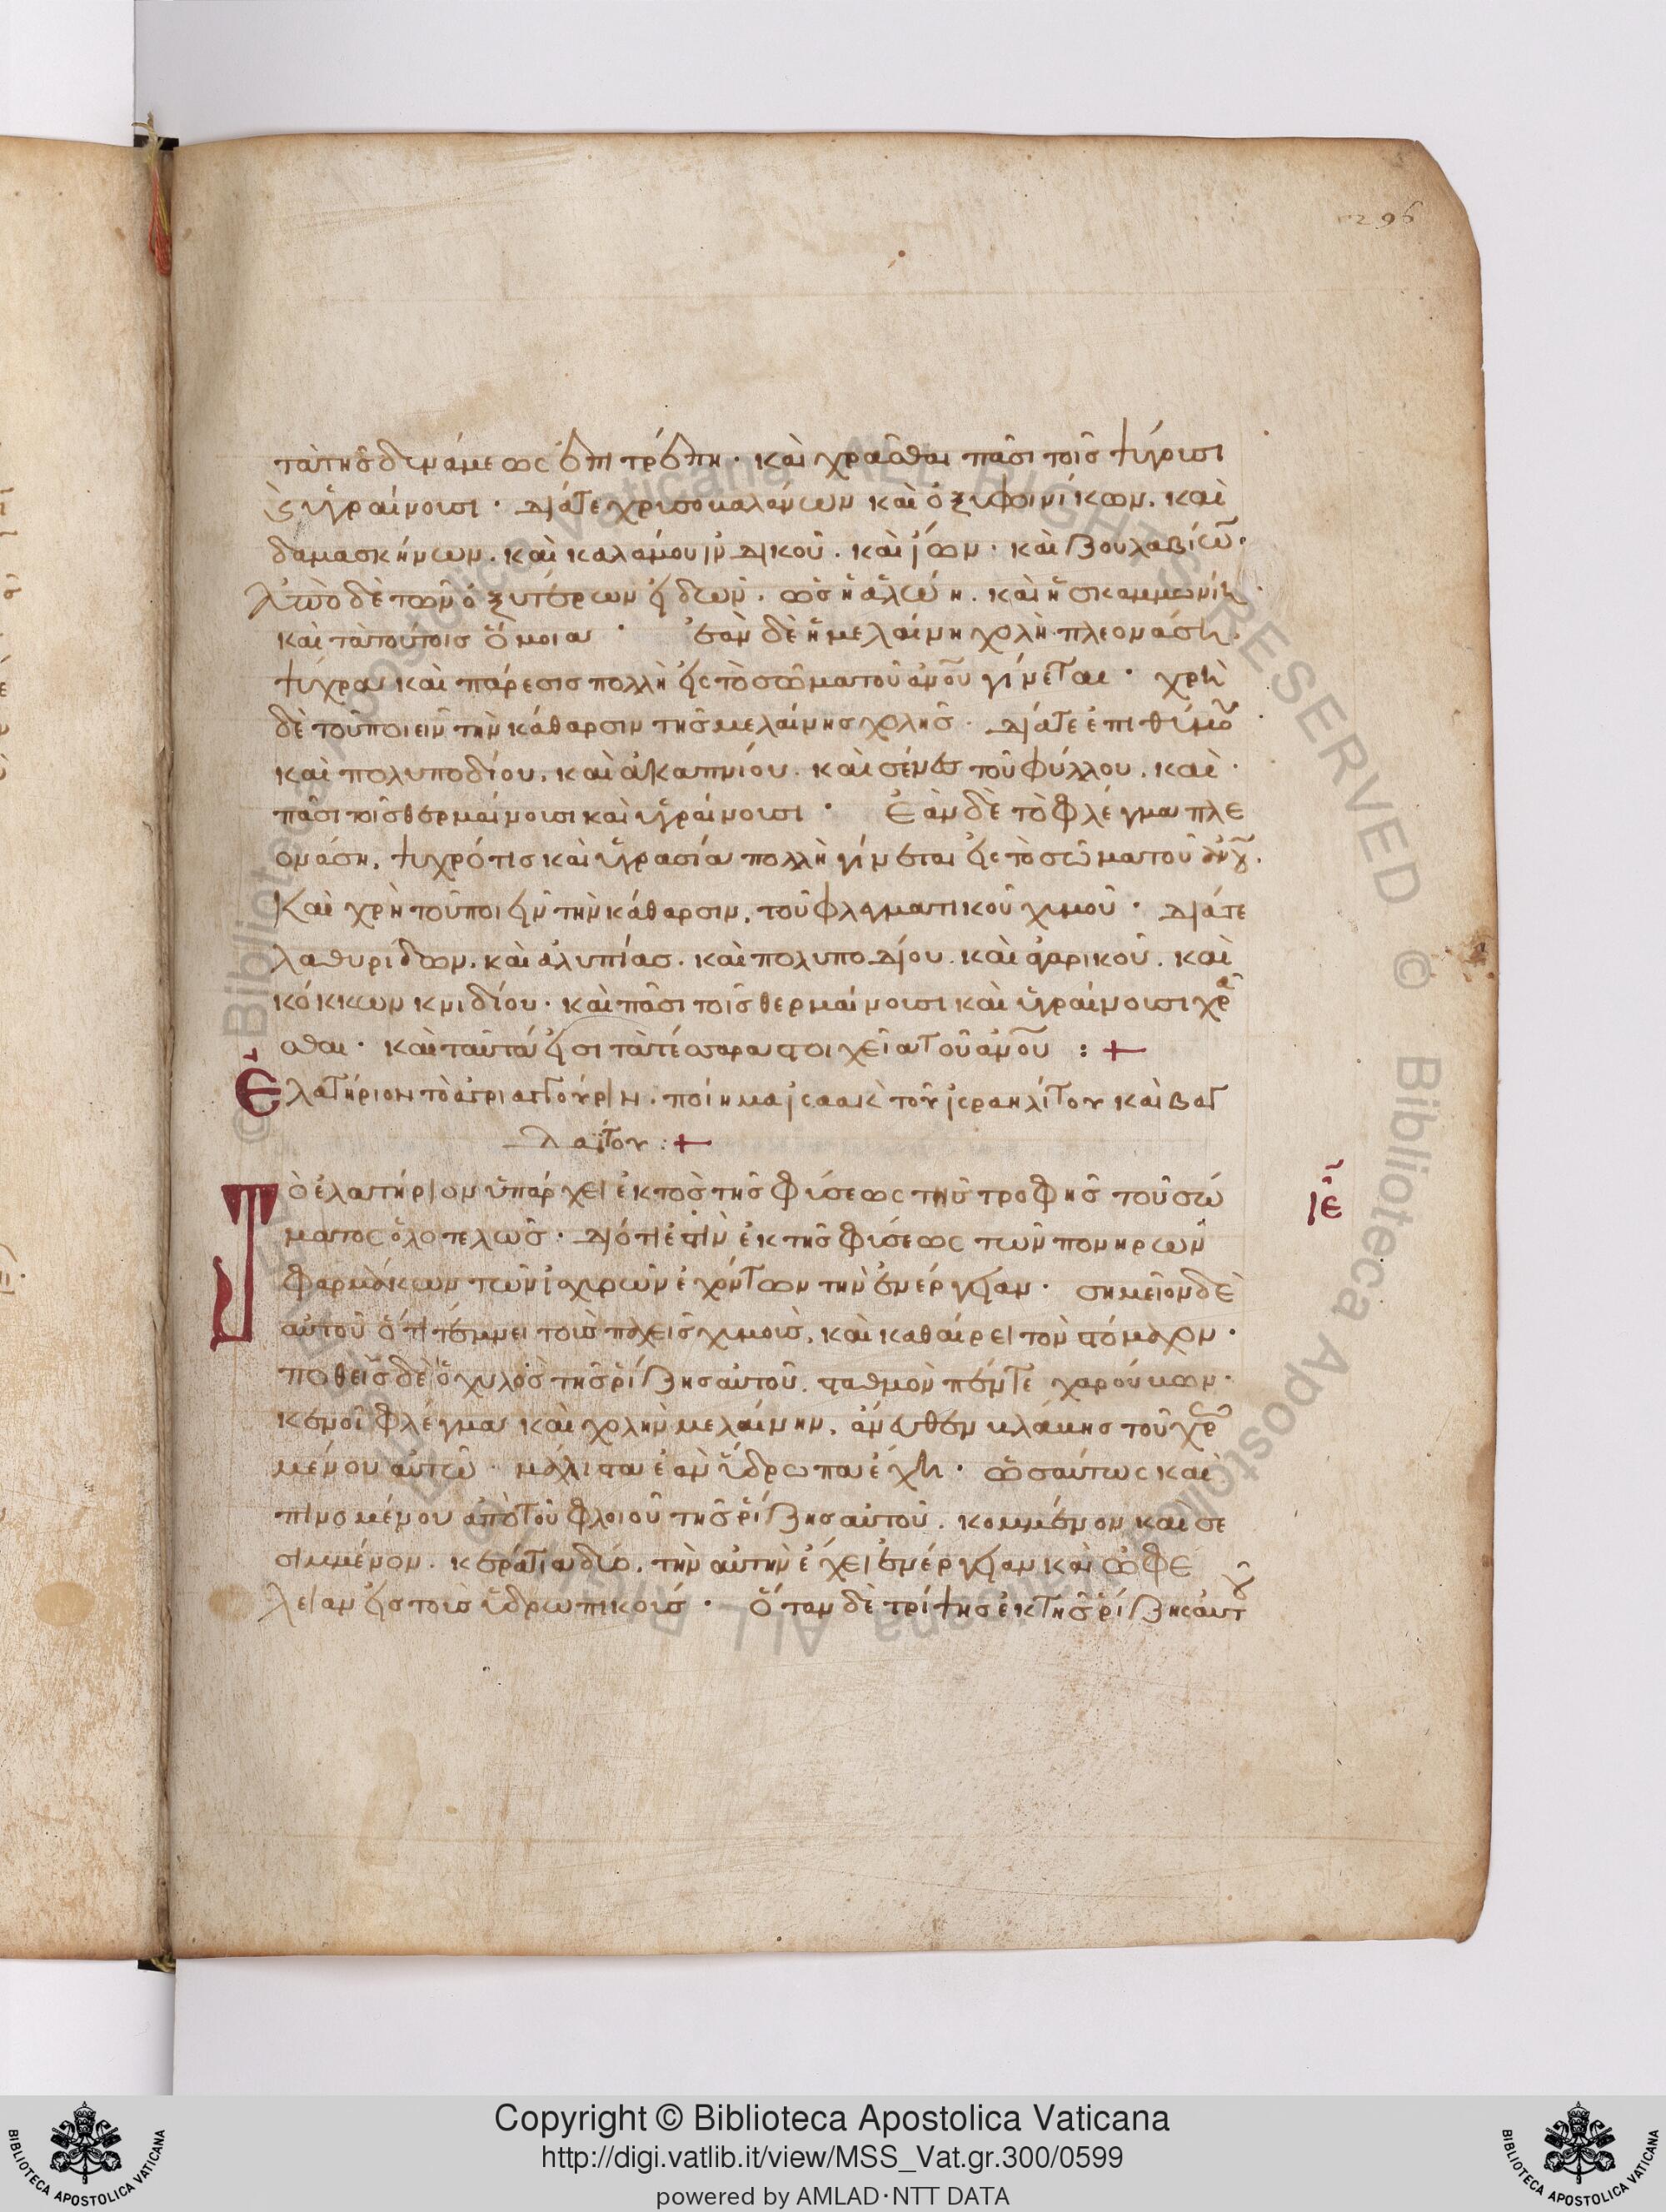 296
τὰ τῆς δυνάμεως ἐπιτρέπη· καὶ χρᾶσθαι πᾶσι τοῖς ψύχουσι
καὶ ὑγραίνουσι· διάτε χρυσοκαλάνων καὶ ὀξυφοινίκων. καὶ
δαμασκήνων. καὶ καλάμου ἰνδικοῦ. καὶ ἴων· καὶ
ἀπὸ δὲ τῶν ὀξυτέρων εἰδῶν. ὡς ἡ ἀλώη. καὶ ἡ σκαμμωνία
καὶ τὰ τούτοις ὅμοια· ἐὰν δὲ ἡ μελαίνη χολὴ πλεονάση.
ψύχρα καὶ πάρεσις πολλὴ εἰς τὸ σῶμα τοῦ ἀνου γίνεται· χρὴ
δὲ τοῦ ποιεῖν τὴν κάθαρσιν τῆς μελαίνης χολῆς· διάτε ἐπιθύμου
καὶ πολυποδίου. καὶ ἀκαπνίου. καὶ σένε τοῦ φύλλου. καὶ
πᾶσι τοῖς θερμαίνουσι καὶ ὑγραίνουσι· Ἐὰν δὲ τὸ φλέγμα πλε
ονάση. ψυχρότις καὶ ὑγρασία πολλὴ γίνεται εἰς τὸ σῶμα τοῦ ἀνου.
Καὶ χρὴ τοῦ ποιεῖν τὴν κάθαρσιν, τοῦ φλεγματικοῦ χυμοῦ· διάτε
λαθυρίδων. καὶ ἀλυπίας. καὶ πολυποδίου. καὶ ἀγαρικοῦ. καὶ
κόκκων κνιδίου· καὶ πᾶσι τοῖς θερμαίνουσι καὶ ὑγραίνουσι χρᾶ
σθαι· καὶ ταῦτα εἰσι τὰ τέσσαρα στοιχεῖα τοῦ ἀνου :+
Ἐλατήριον τὸ ἀγριαγγούριν. ποίημα ἰσαακ τοῦ ἰσραηλίτου καὶ βαγ
δαΐτου :+
Τὸ ἐλατήριον ὑπάρχει ἐκτὸς τῆς φύσεως τῆς τροφῆς τοῦ σώ
ιε
ματος ὁλοτελῶς· διότι ἐστὶν ἐκ τῆς φύσεως τῶν πονηρῶν
φαρμάκων τῶν ἰσχυρῶν ἐχόντων τὴν ἐνέργειαν· σημεῖον δὲ
αὐτοῦ ὅτι τέμνει τοὶς παχεῖς χυμοὶς, καὶ καθαίρει τὸν στόμαχον·
ποθεὶς δὲ ὁ χυλὸς τῆς ῥίζης αὐτοῦ. σταθμὸν πέντε χαρούκων·
κενοῖ φλέγμα καὶ χολὴν μελαίνην, ἄνευθεν κλάκης τοῦ χρω
μένου αὐτῶ· μάλιστα ἐὰν ὕδρωπα ἔχη· ὡσαύτως καὶ
πινομένου ἀπὸ τοῦ φλοιοῦ τῆς ῥίζης αὐτοῦ. κομμένον καὶ σε
σιμμένον. κεράτια δύο, τὴν αὐτὴν ἔχει ἐνέργειαν καὶ ὠφέ
λειαν εἰς τοὶς ὑδρωπικοίς· Ὅταν δὲ τρίψης ἐκ τῆς ῥίζης αὐτοῦ
Copyright © Biblioteca Apostolica Vaticana
http://digi.vatlib.it/view/MSS_Vat.gr.300/0599
powered by AMLAD·NTT DATA
BIBLIOTECA APOSTOLICA VATICANA
BIBLIOTECA APOSTOLICA VATICANA
© Biblioteca Apostolica Vaticana ALL RIGHTS RESERVED
© Biblioteca Apostolica Vaticana ALL RIGHTS RESERVED